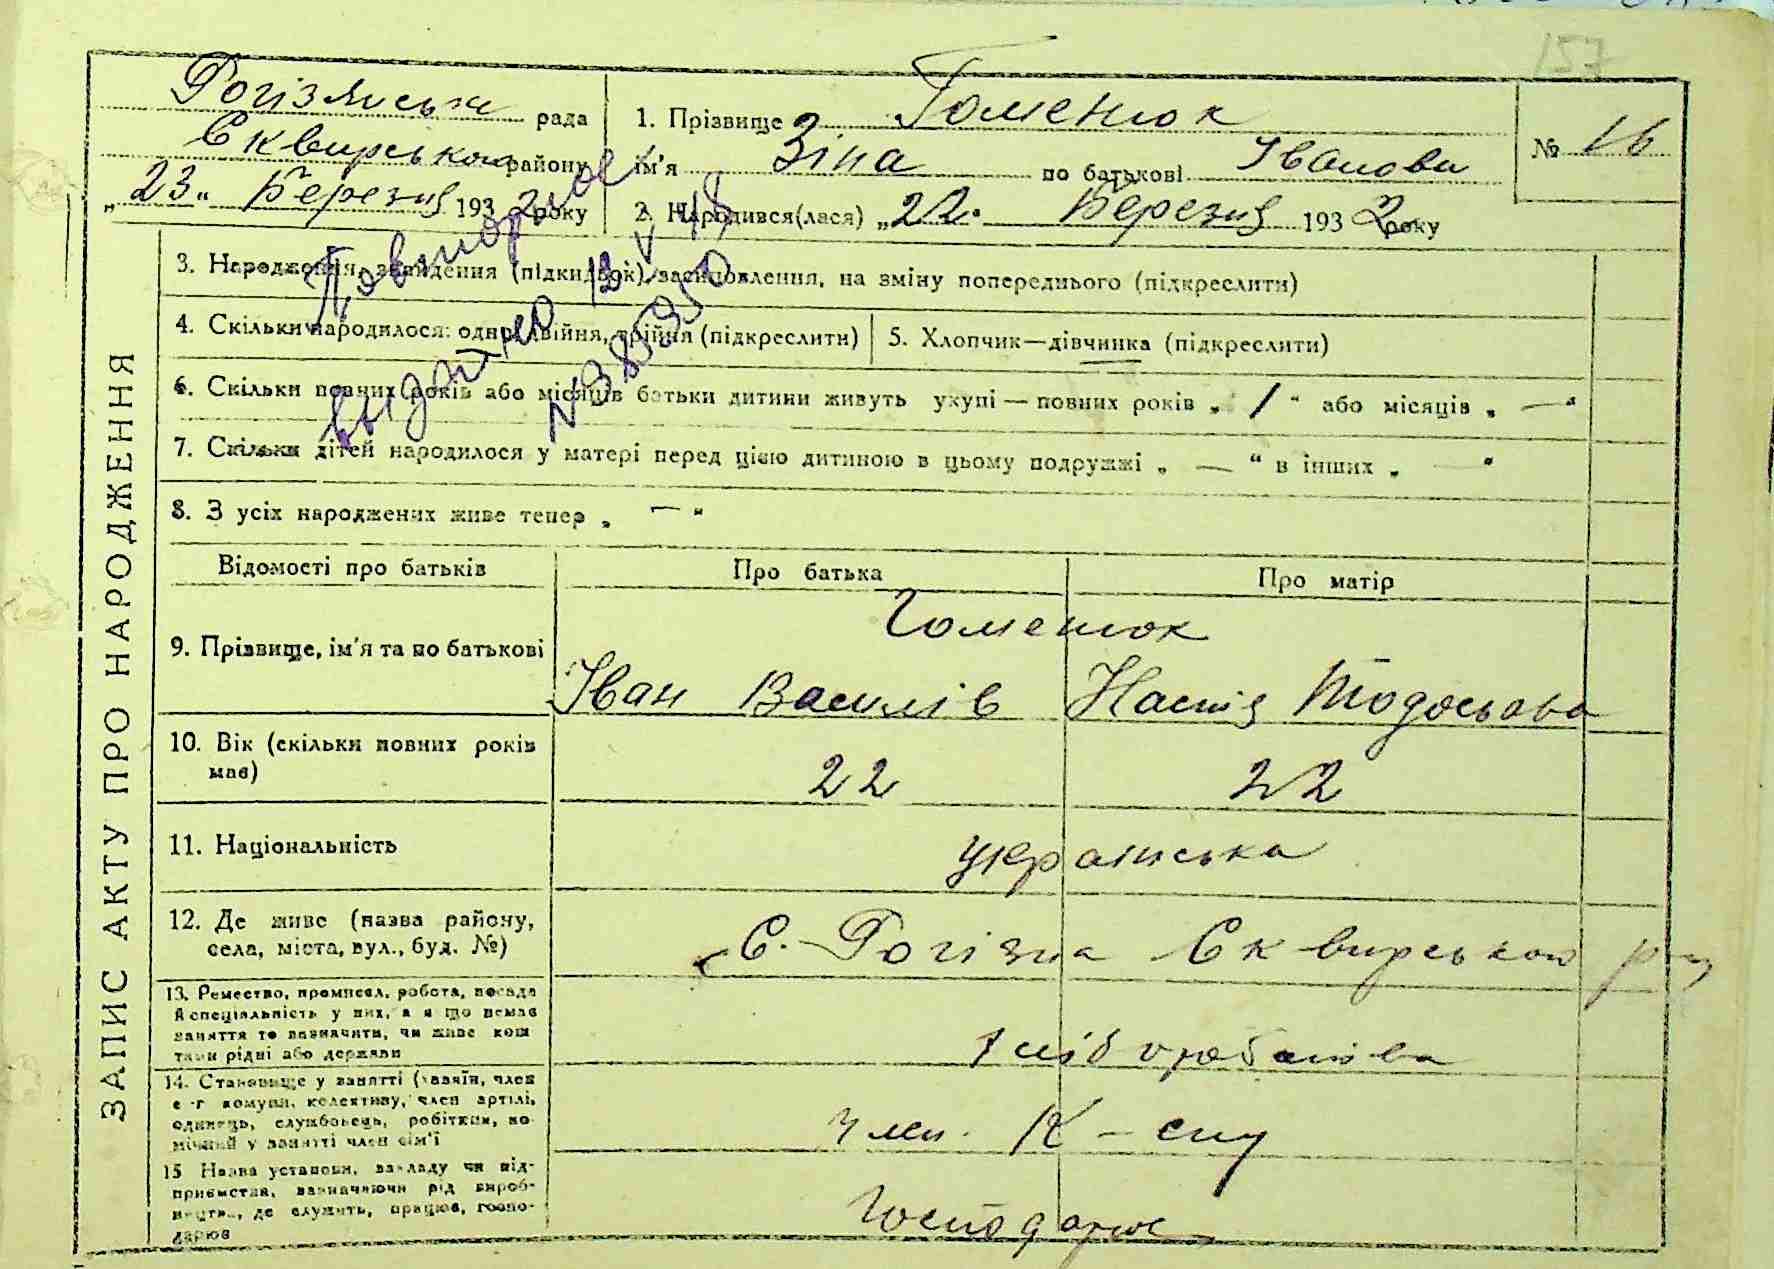 157
Рогізянська рада
Сквирського району
„23“ Березня 1932 року
1. Прізвище Гоменюк
ім'я Зіна по батькові Іванови
2. Народився(лася) „22“ Березня 1932 року
№ 16
Повторное
выдано 12 V 48
N 385950
ЗАПИС АКТУ ПРО НАРОДЖЕННЯ
3. Народження, знайдення (підкидьок), засиновлення, на зміну попереднього (підкреслити)
4. Скільки народилося: одно, двійня, трійня (підкреслити)
5. Хлопчик—дівчинка (підкреслити)
6. Скільки повних років або місяців батьки дитини живуть укупі — повних років „ 1 “ або місяців „ — “
7. Скільки дітей народилося у матері перед цією дитиною в цьому подружжі „ — “ в інших „ — “
8. З усіх народжених живе тепер „ — “
Відомості про батьків Про батька Про матір
9. Прізвище, ім'я та по батькові
Гоменюк
Іван Василів Настя Тодосьова
10. Вік (скільки повних років
має)
22 22
11. Національність
українська
12. Де живе (назва району,
села, міста, вул., буд. №)
С. Рогізна Сквирського р-ну
13. Ремество, промисел, робота, посада
й спеціяльність у них, а якщо немає
заняття то зазначити, чи живе кош
тами рідні або держави
хліборобства
14. Становище у занятті (хазяїн, член
с-г комуни, колективу, член артілі,
одинець, службовець, робітник, по-
мічний у занятті член сім'ї
член. К-спу
15 Назва установи, закладу чи під-
приємства, зазначаючи рід вироб-
ництва, де служить, працює, госпо-
дарює
Господарює